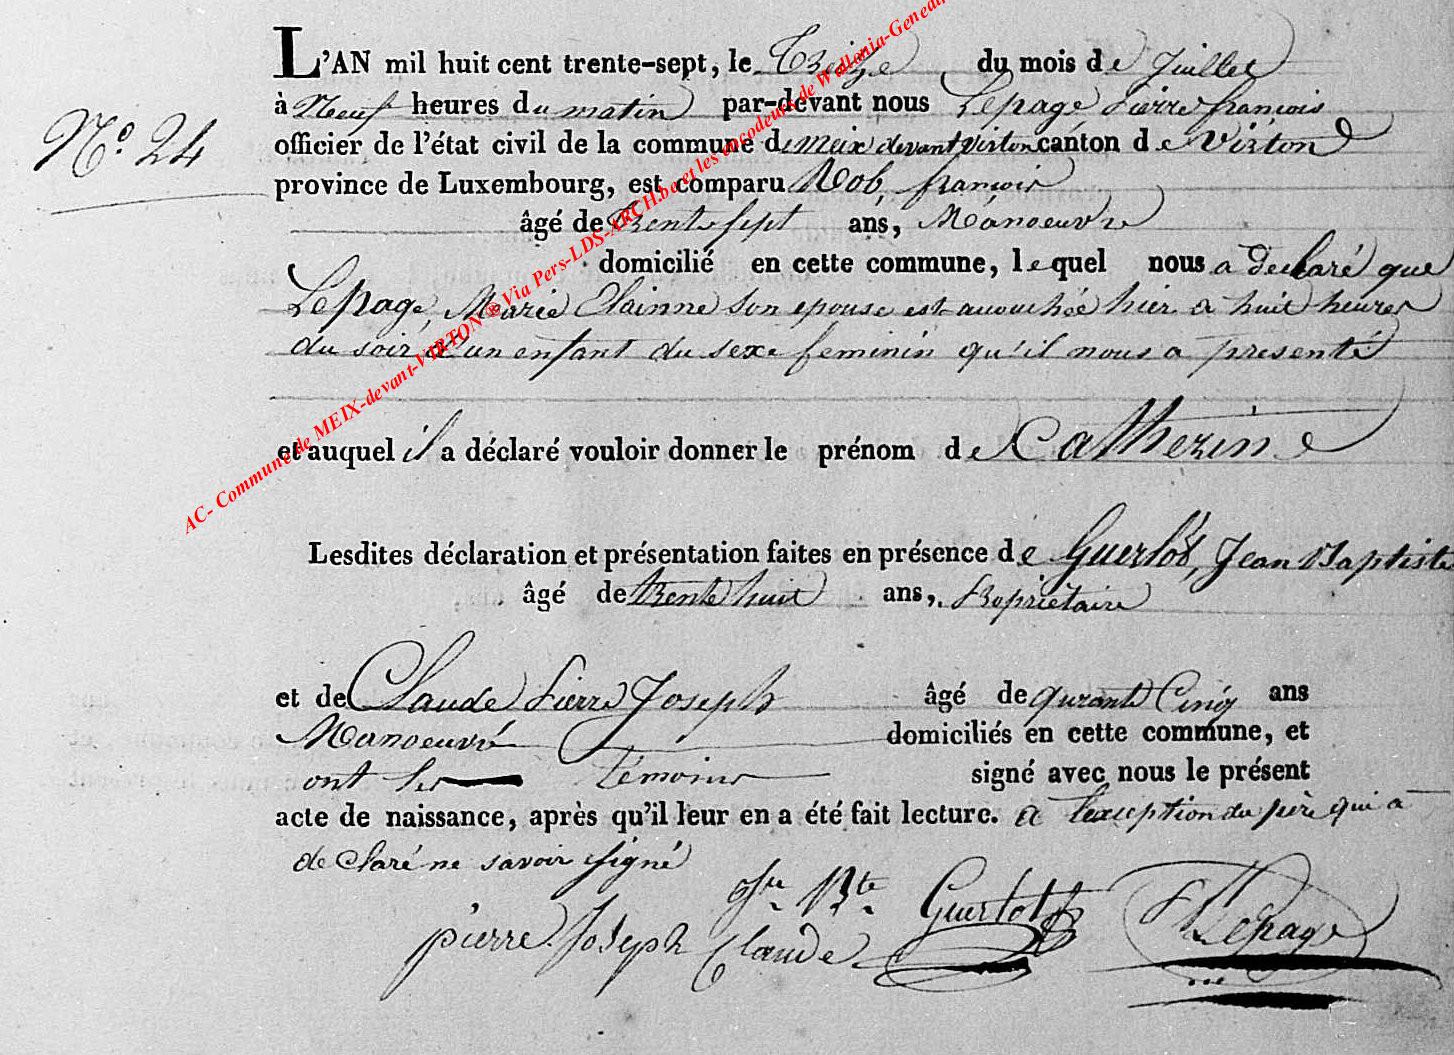 L'AN mil huit cent trente-sept, le Treize du mois de Juillet
à Neuf heures du matin par-devant nous Lepage, Pierre françois
N.o 24
officier de l'état civil de la commune de Meix devant virton canton de Virton
province de Luxembourg, est comparu Rob, francois
âgé de Trente sept ans, Manoeuvre
domicilié en cette commune, lequel nous a declaré que
Lepage, Marie Clainne son epouse est accouchée hier a huit heures
du soir d'un enfant du sexe feminin qu'il nous a presenté
et auquel il a déclaré vouloir donner le prénom de Catherine
Lesdites déclaration et présentation faites en présence de Guerlot, Jean Baptiste
âgé de trente huit ans, Propriétaire
et de Claude Pierre Joseph âgé de qurante Cinq ans
Manoeuvre domiciliés en cette commune, et
ont les témoins signé avec nous le présent
acte de naissance, après qu'il leur en a été fait lecture. a l'exception du père qui a
declaré ne savoir signé
Jn Bte Guerlot
Lepage
pierre Joseph Claude
AC- Commune de MEIX-devant-VIRTON ® Via Pers-LDS-ARCH.be et les encodeurs de Wallonia-Geneal